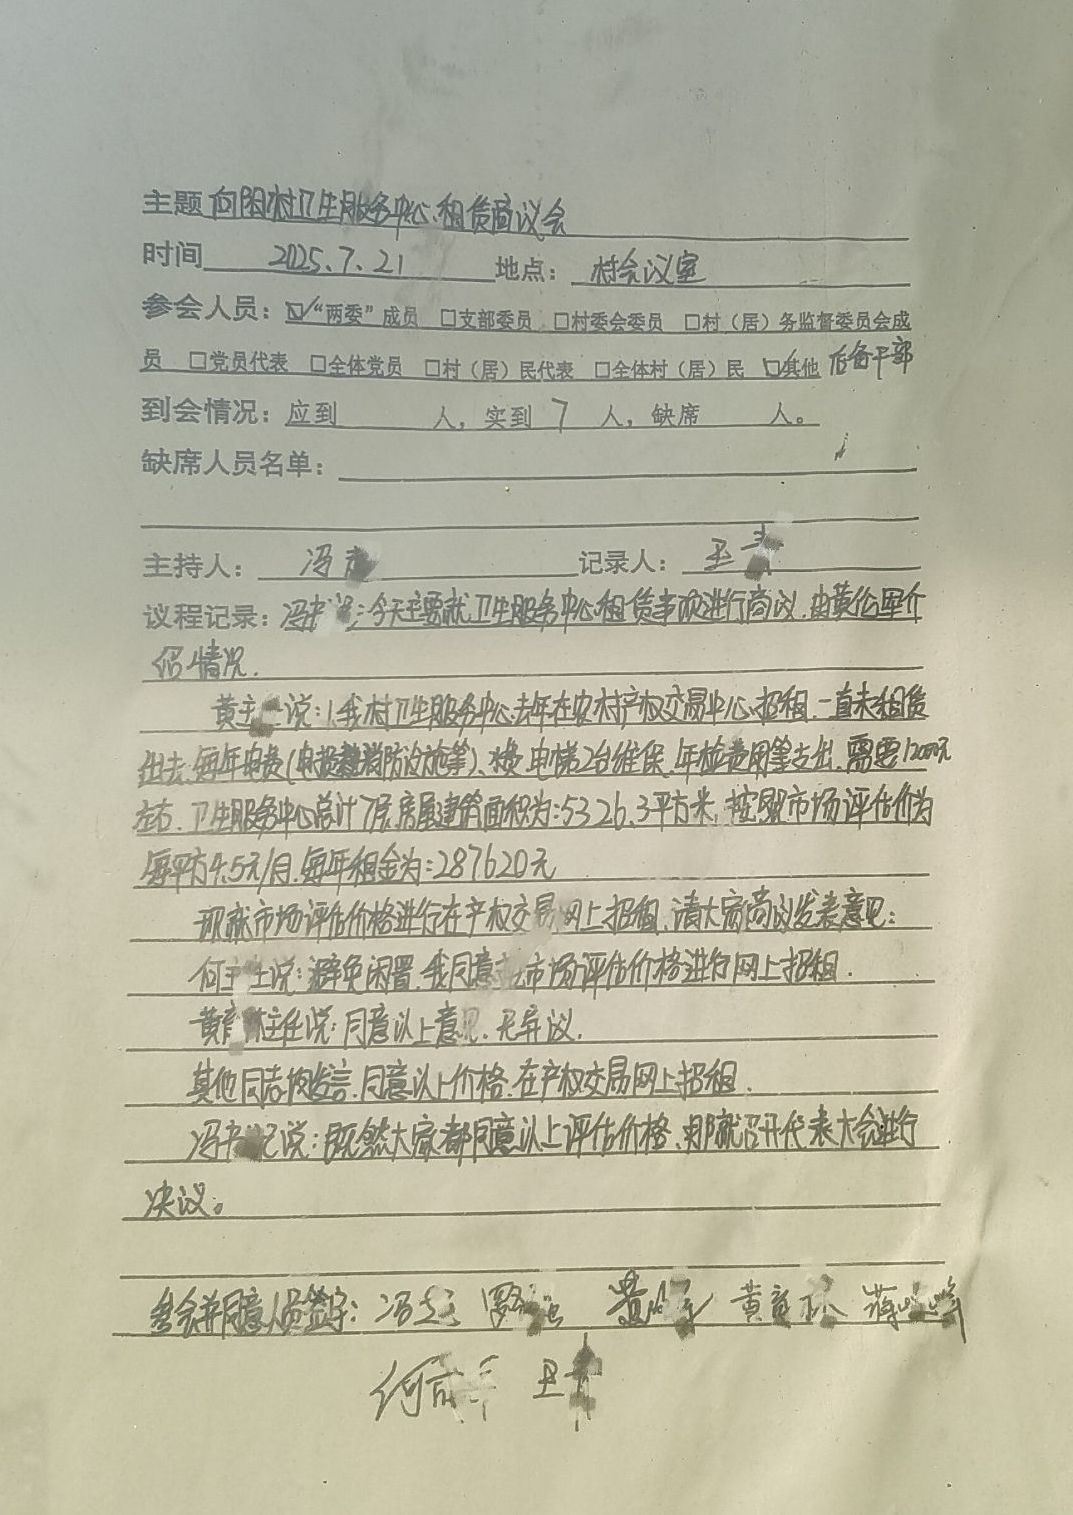 主题 向阳村卫生服务中心租赁商议会
时间 2025.7.21 地点：村会议室
参会人员：☑“两委”成员 □支部委员 □村委会委员 □村（居）务监督委员会成
员 □党员代表 □全体党员 □村（居）民代表 □全体村（居）民 ☑其他 后备干部
到会情况：应到 人，实到 7 人，缺席 人。
缺席人员名单：
主持人：冯 记录人：王
议程记录：冯书记：今天主要就卫生服务中心租赁事项进行商议，由黄伦军介
绍情况.
黄主任说：1.我村卫生服务中心去年在农村产权交易中心招租，一直未租赁
出去，每年电费（电损 消防设施等）、水费、电梯2台维保、年检费用等支出，需要12000元
左右，卫生服务中心总计7层，房屋建筑面积为：5326.3平方米，按照市场评估价为
每平方4.5元/月，每年租金为：287620元
现就市场评估价格进行在产权交易网上招租，请大家商议发表意见：
何主任说：避免闲置，我同意 市场评估价格进行网上招租.
黄 主任说：同意以上意见，无异议.
其他同志均发言，同意以上价格，在产权交易网上招租.
冯书记说：既然大家都同意以上评估价格，那就召开代表大会进行
决议。
参会并同意人员签字：冯 黄 黄 蒋
何 王